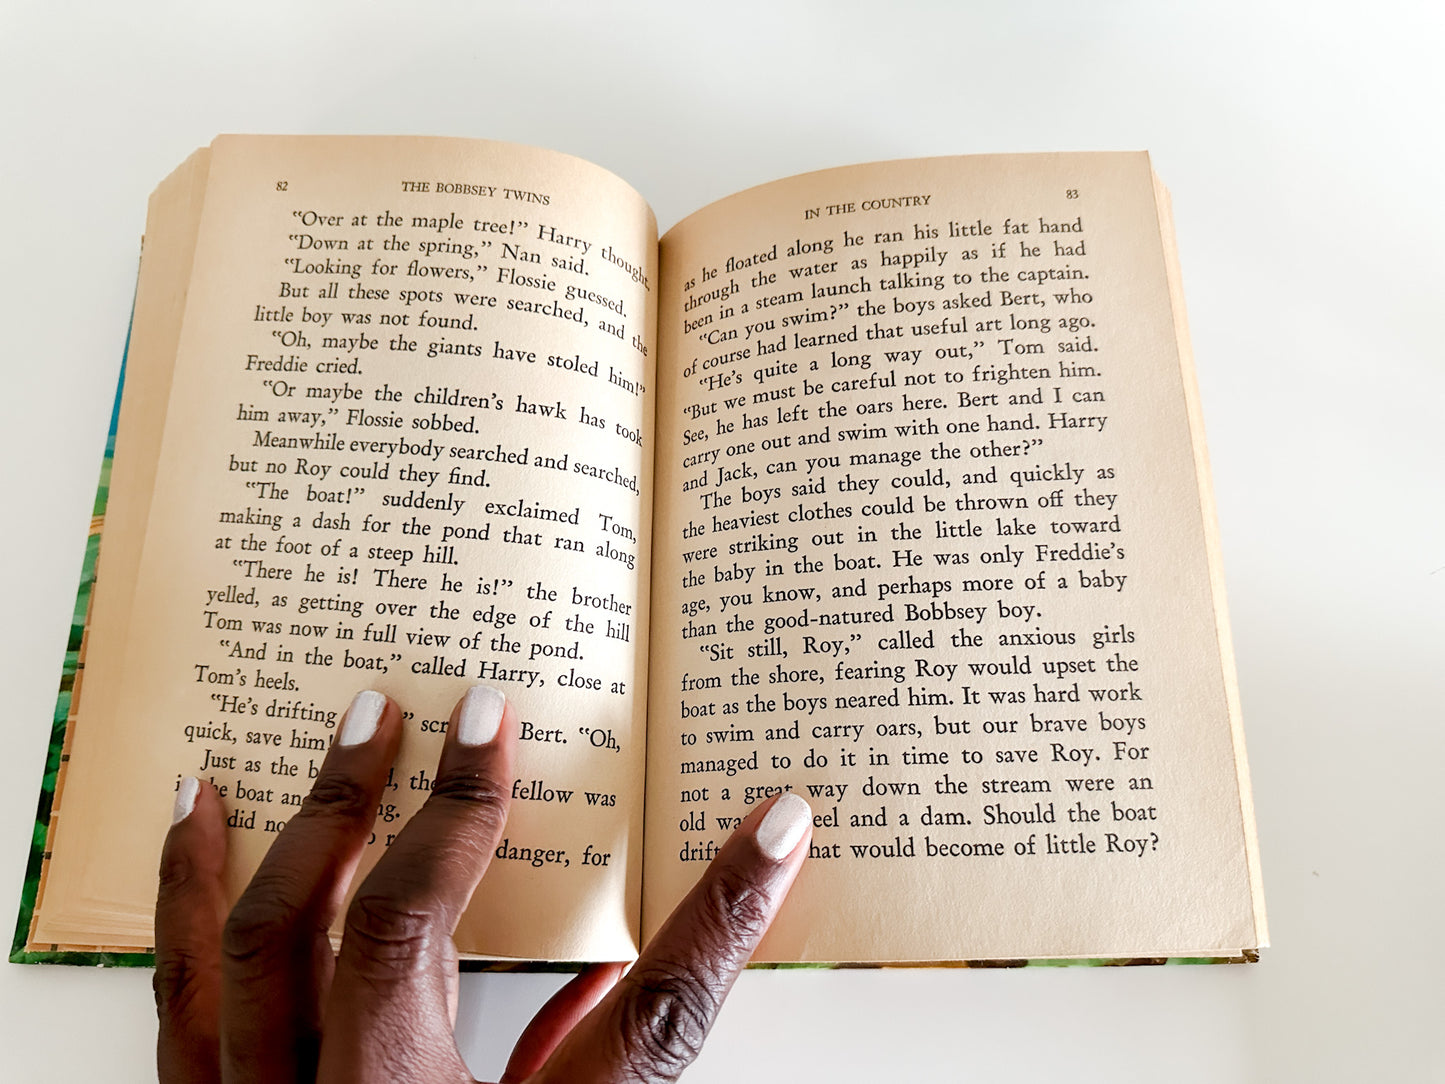 82
THE BOBBSEY TWINS
“Over at the maple tree!” Harry thought.
“Down at the spring,” Nan said.
“Looking for flowers,” Flossie guessed.
But all these spots were searched, and the
little boy was not found.
“Oh, maybe the giants have stoled him!”
Freddie cried.
“Or maybe the children’s hawk has took
him away,” Flossie sobbed.
Meanwhile everybody searched and searched,
but no Roy could they find.
“The boat!” suddenly exclaimed Tom,
making a dash for the pond that ran along
at the foot of a steep hill.
“There he is! There he is!” the brother
yelled, as getting over the edge of the hill
Tom was now in full view of the pond.
“And in the boat,” called Harry, close at
Tom’s heels.
“He’s drifting Bert. “Oh,
quick, save him!
Just as the fellow was
boat
did danger, for
IN THE COUNTRY
83
as he floated along he ran his little fat hand
through the water as happily as if he had
been in a steam launch talking to the captain.
“Can you swim?” the boys asked Bert, who
of course had learned that useful art long ago.
“He’s quite a long way out,” Tom said.
“But we must be careful not to frighten him.
See, he has left the oars here. Bert and I can
carry one out and swim with one hand. Harry
and Jack, can you manage the other?”
The boys said they could, and quickly as
the heaviest clothes could be thrown off they
were striking out in the little lake toward
the baby in the boat. He was only Freddie’s
age, you know, and perhaps more of a baby
than the good-natured Bobbsey boy.
“Sit still, Roy,” called the anxious girls
from the shore, fearing Roy would upset the
boat as the boys neared him. It was hard work
to swim and carry oars, but our brave boys
managed to do it in time to save Roy. For
not a great way down the stream were an
old and a dam. Should the boat
would become of little Roy?